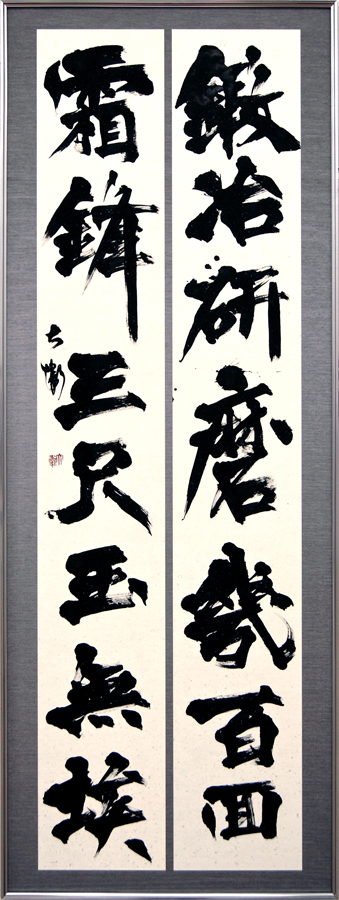 鍛冶研磨幾百回
霜鋒三尺玉無埃